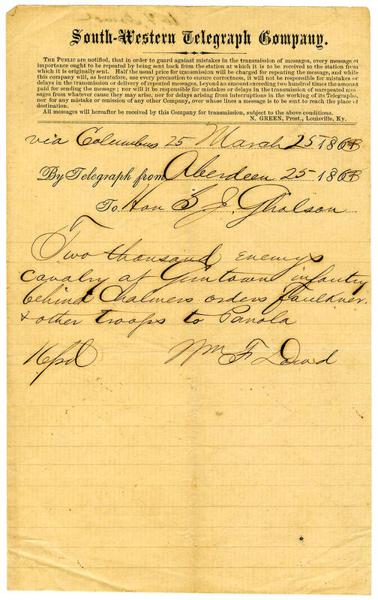 South-Western Telegraph Company.
THE PUBLIC are notified, that in order to guard against mistakes in the transmission of messages, every message of
importance ought to be repeated by being sent back from the station at which it is to be received to the station from
which it is originally sent. Half the usual price for transmission will be charged for repeating the message, and while
this company will, as heretofore, use every precaution to ensure correctness, it will not be responsible for mistakes or
delays in the transmission or delivery of repeated messages, beyond an amount exceeding two hundred times the amount
paid for sending the message; nor will it be responsible for mistakes or delays in the transmission of unrepeated mes-
sages from whatever cause they may arise, nor for delays arising from interruptions in the working of its Telegraphs,
nor for any mistake or omission of any other Company, over whose lines a message is to be sent to reach the place of
destination.
All messages will hereafter be received by this Company for transmission, subject to the above conditions.
N. GREEN, Prest., Louisville, Ky.
via Columbus 25 March 25 186
By Telegraph from Aberdeen 25 186
To Hon S J. Gholson
Two thousand enemys
cavalry at Guntown infantry
behind Chalmers orders Faulkner
& other troops to Panola
16 pd Wm F Dowd